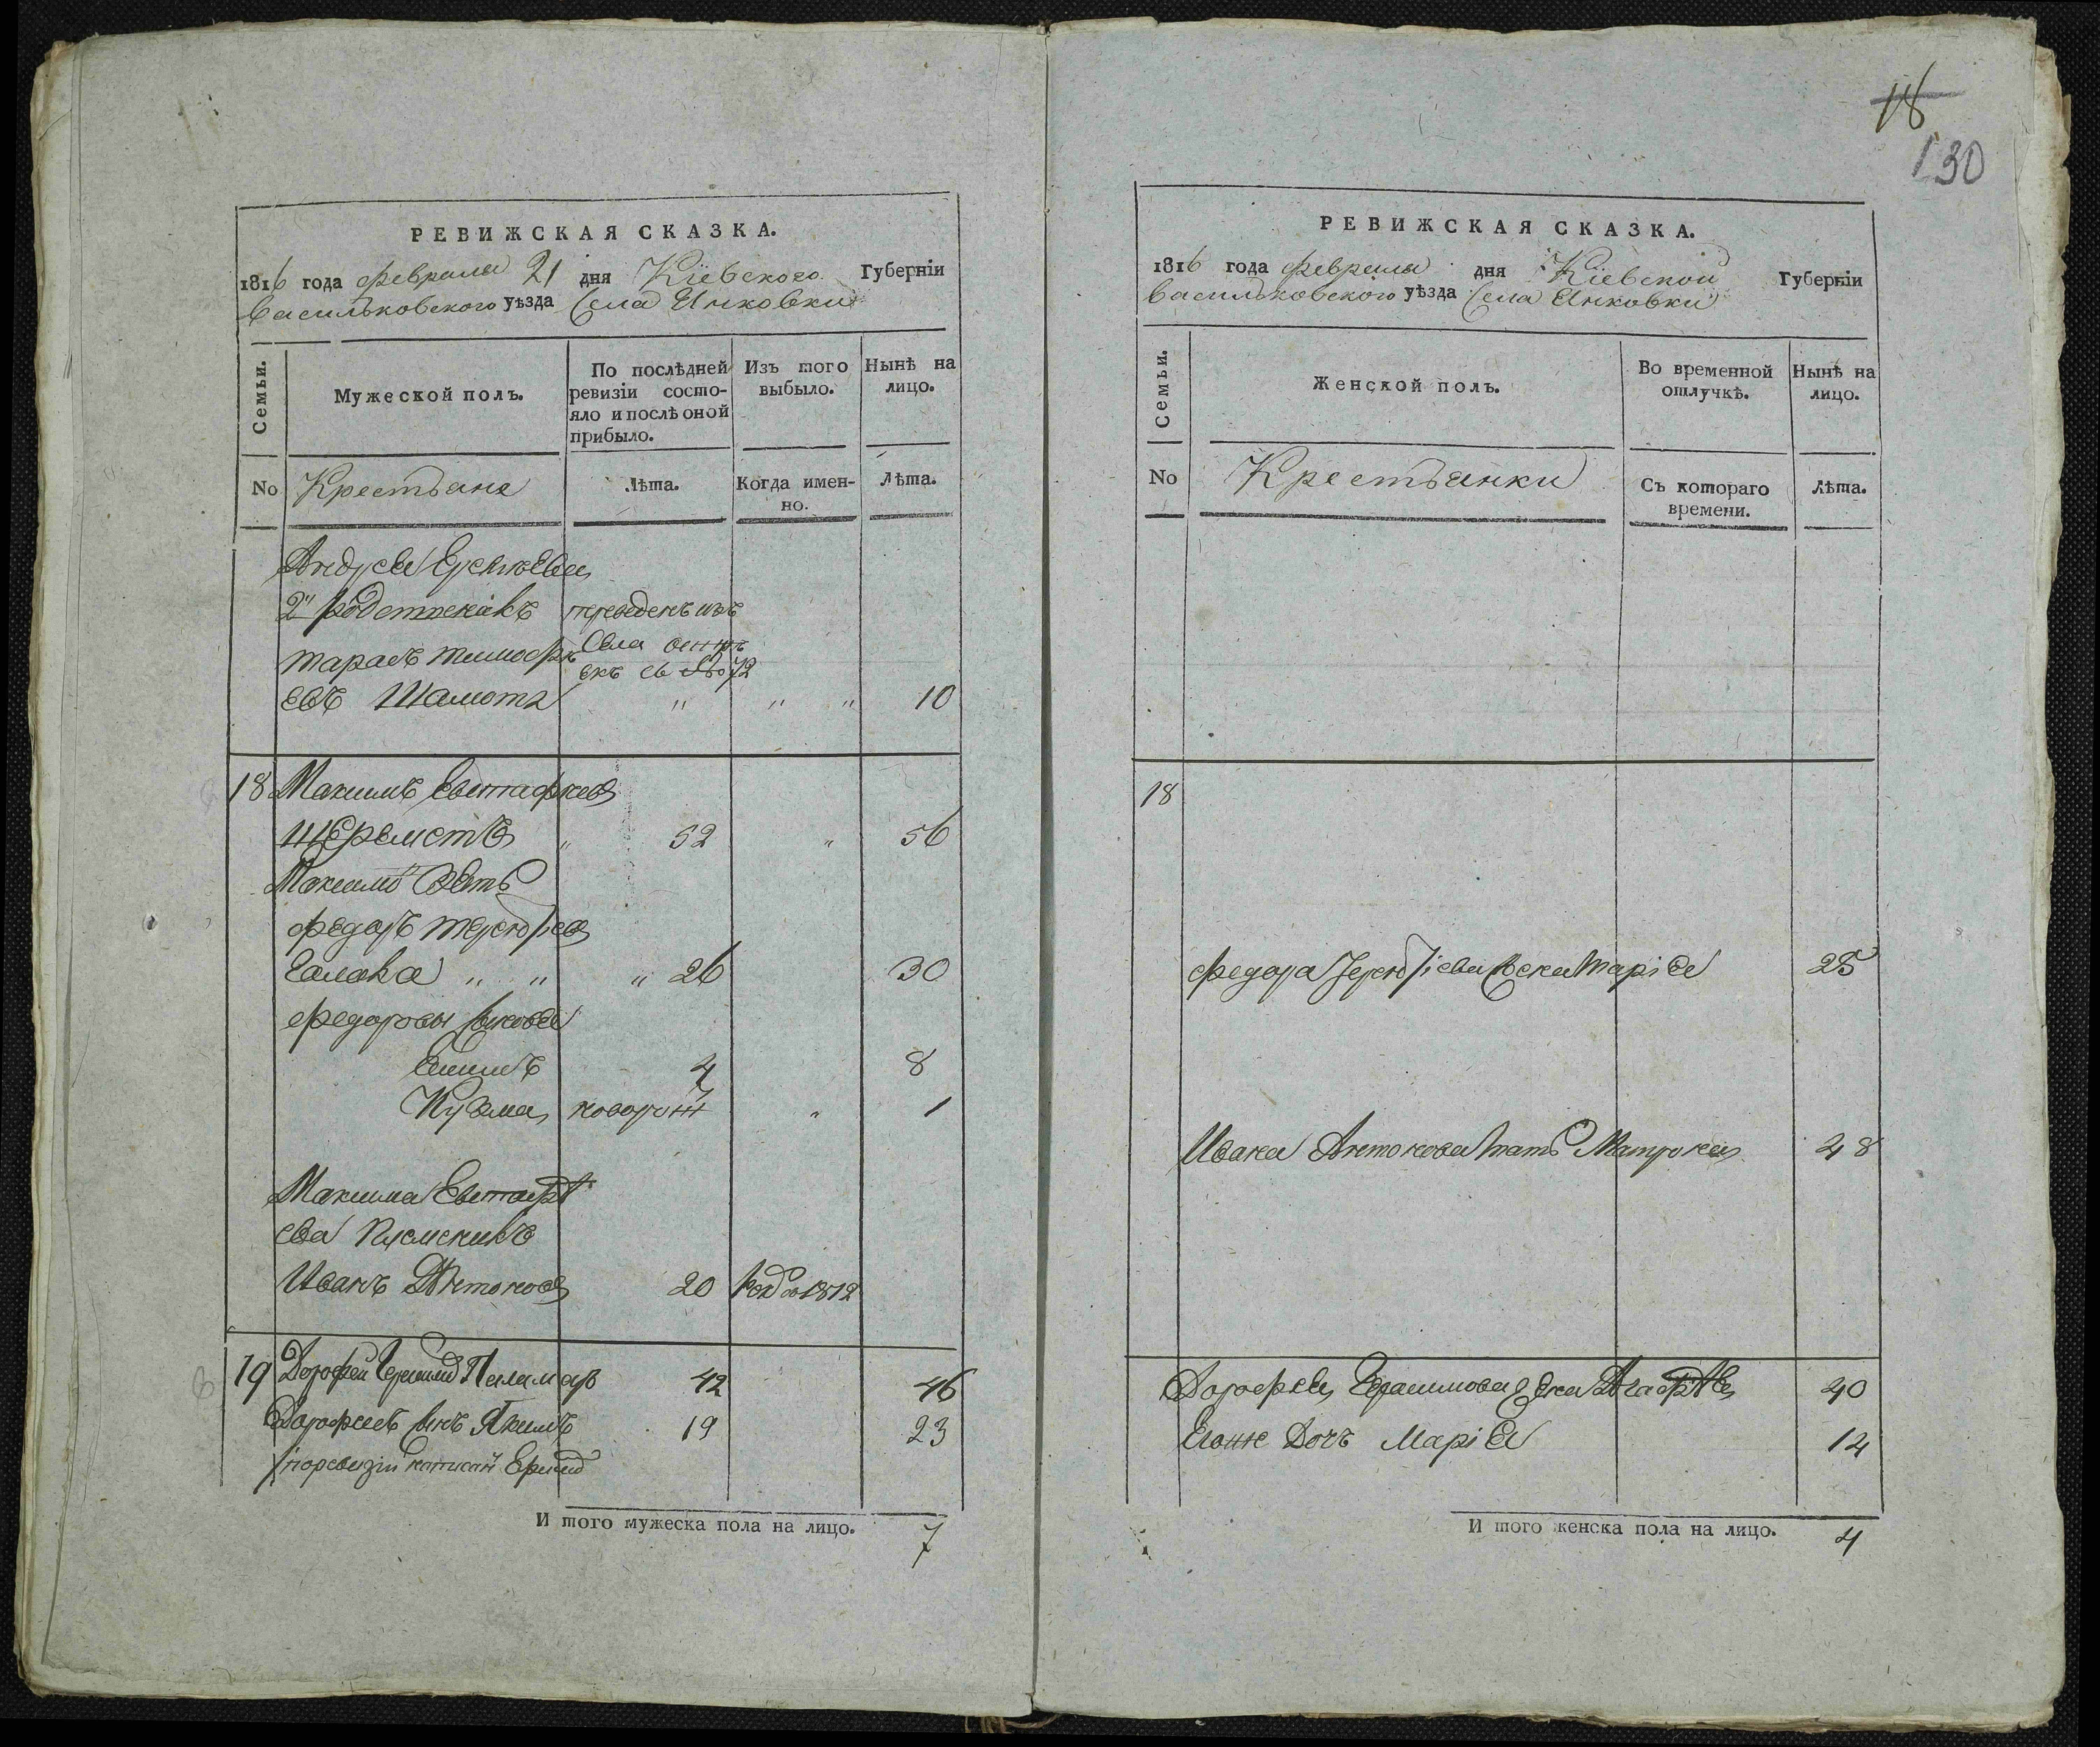 РЕВИЖСКАЯ СКАЗКА.
1816 года февраля 21 дня Кіевского Губерніи
Васильковского уѣзда Села Янковки
Семьи.
Мужеской полъ.
По послѣдней ревизіи состо-
яло и послѣ оной
прибыло.
Изъ того
выбыло.
Нынѣ на
лицо.
No
Крестьяне
Лѣта.
Когда имен-
но.
Лѣта.
Андрея
2й
переведенъ изъ
Тарасъ Тимофѣ
Села
евъ Шамота " " " 10
18 Максимъ Евстафіев
Шереметъ " 52 " 56
Максима зять
Федоръ Терентіев
Галака " " " 26 30
Федоровы сыновья
4 8
Кузма новорож " 1
Максима Евстафі
ева племеникъ
Иванъ Антонов 20 1812
19 Дорофей Герасимов Паламар 42 46
Дорофеевъ сынъ Якимъ 19 23
по ревизіи написан
И того мужеска пола на лицо. 7
18
130
РЕВИЖСКАЯ СКАЗКА.
1816 года февраля дня Кіевской Губерніи
Васильковского уѣзда Села Янковки
Семьи.
Женской полъ.
Во временной
отлучкѣ.
Нынѣ на
лицо.
No
Крестьянки
Съ котораго
времени.
Лѣта.
18
Федора Терентіева жена Марія 25
Ивана Антонова мать Матрона 48
Дорофея Герасимова жена Агафія 40
Егоже дочь Марія 14
И того женска пола на лицо. 4